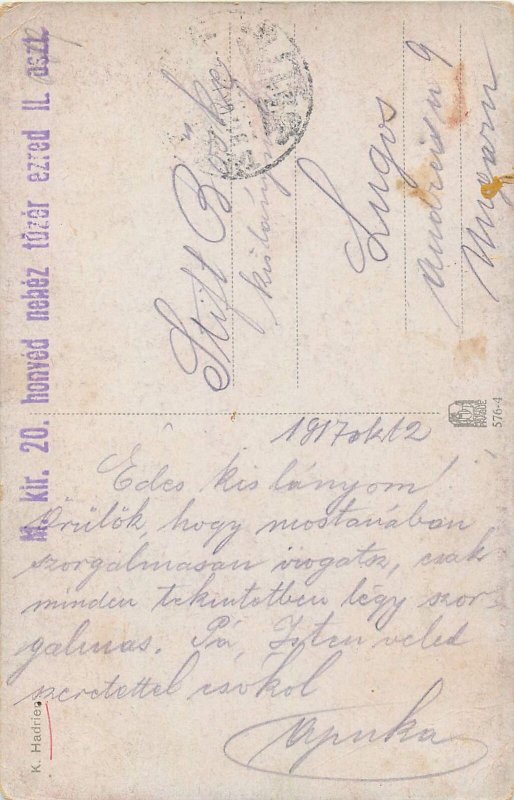 M. Kir. 20. honvéd nehéz tüzér ezred II. oszt.
Stift Böske
kislány
Lugos
Ungarn
576-4
1917 okt 12
Édes kis lányom!
Örülök, hogy mostanában
szorgalmasan irogatsz, csak
minden tekintetben légy szor-
galmas. Pá, Isten veled
szeretettel csókol
Apuka
K. Hadrien